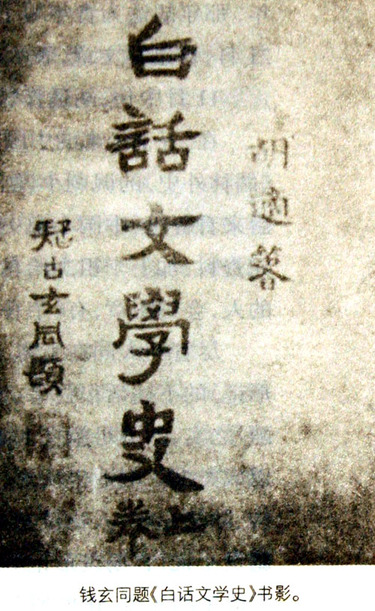 胡適著
白話文學史
上卷
疑古玄同題
钱玄同题《白话文学史》书影。